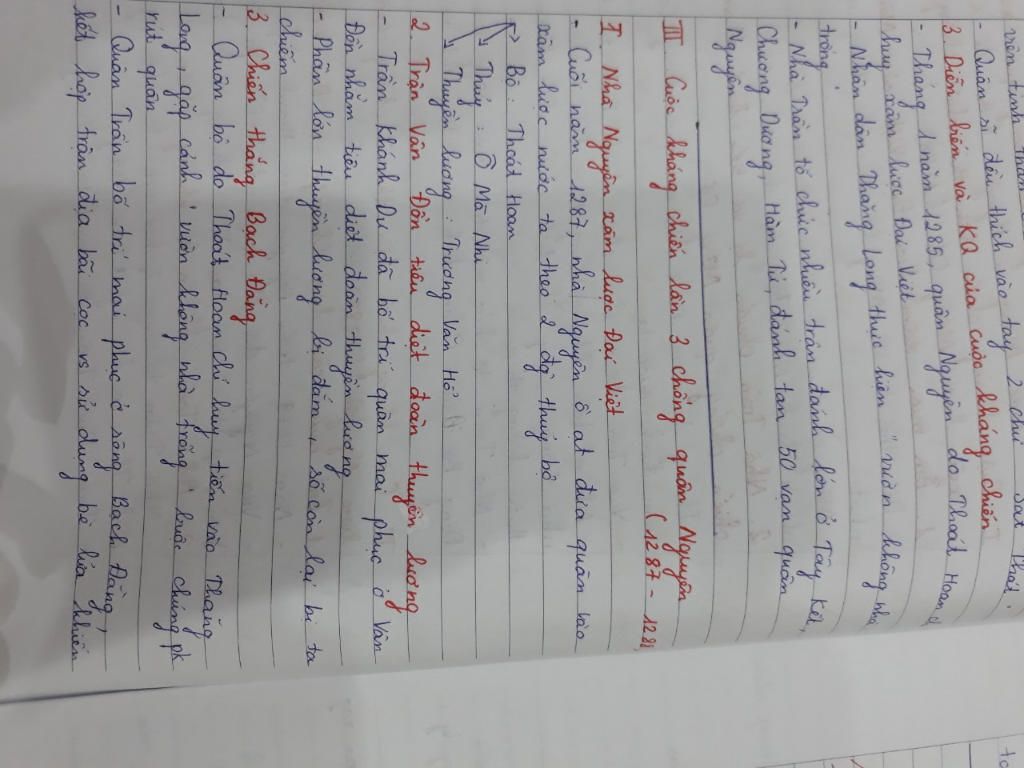 - Quân sĩ đều thích vào tay 2 chữ " Sát Thát".
3. Diễn biến và KQ của cuộc kháng chiến
- Tháng 1 năm 1285, quân Nguyên do Thoát Hoan
huy xâm lược Đại Việt
- Nhân dân Thăng Long thực hiện " vườn không nhà
trống"
- Nhà Trần tổ chức nhiều trận đánh lớn ở Tây Kết,
Chương Dương, Hàm Tử, đánh tan 50 vạn quân
Nguyên
III Cuộc kháng chiến lần 3 chống quân Nguyên
( 1287 - 1288
1. Nhà Nguyên xâm lược Đại Việt
- Cuối năm 1287, nhà Nguyên ồ ạt đưa quân vào
xâm lược nước ta theo 2 đg thuỷ bộ
→ Bộ : Thoát Hoan
→ Thuỷ : Ô Mã Nhi
→ Thuyền lương : Trương Văn Hổ
2. Trận Vân Đồn tiêu diệt đoàn thuyền lương
- Trần Khánh Dư đã bố trí quân mai phục ở Vân
Đồn nhằm tiêu diệt đoàn thuyền lương
- Phần lớn thuyền lương bị đắm, số còn lại bị ta
chiếm
3. Chiến thắng Bạch Đằng
- Quân bộ do Thoát Hoan chỉ huy tiến vào Thăng
Long, gặp cảnh " vườn không nhà trống" buộc chúng pk
rút quân
- Quân Trần bố trí mai phục ở sông Bạch Đằng,
kết hợp trận địa bãi cọc vs sử dụng bè lửa khiến